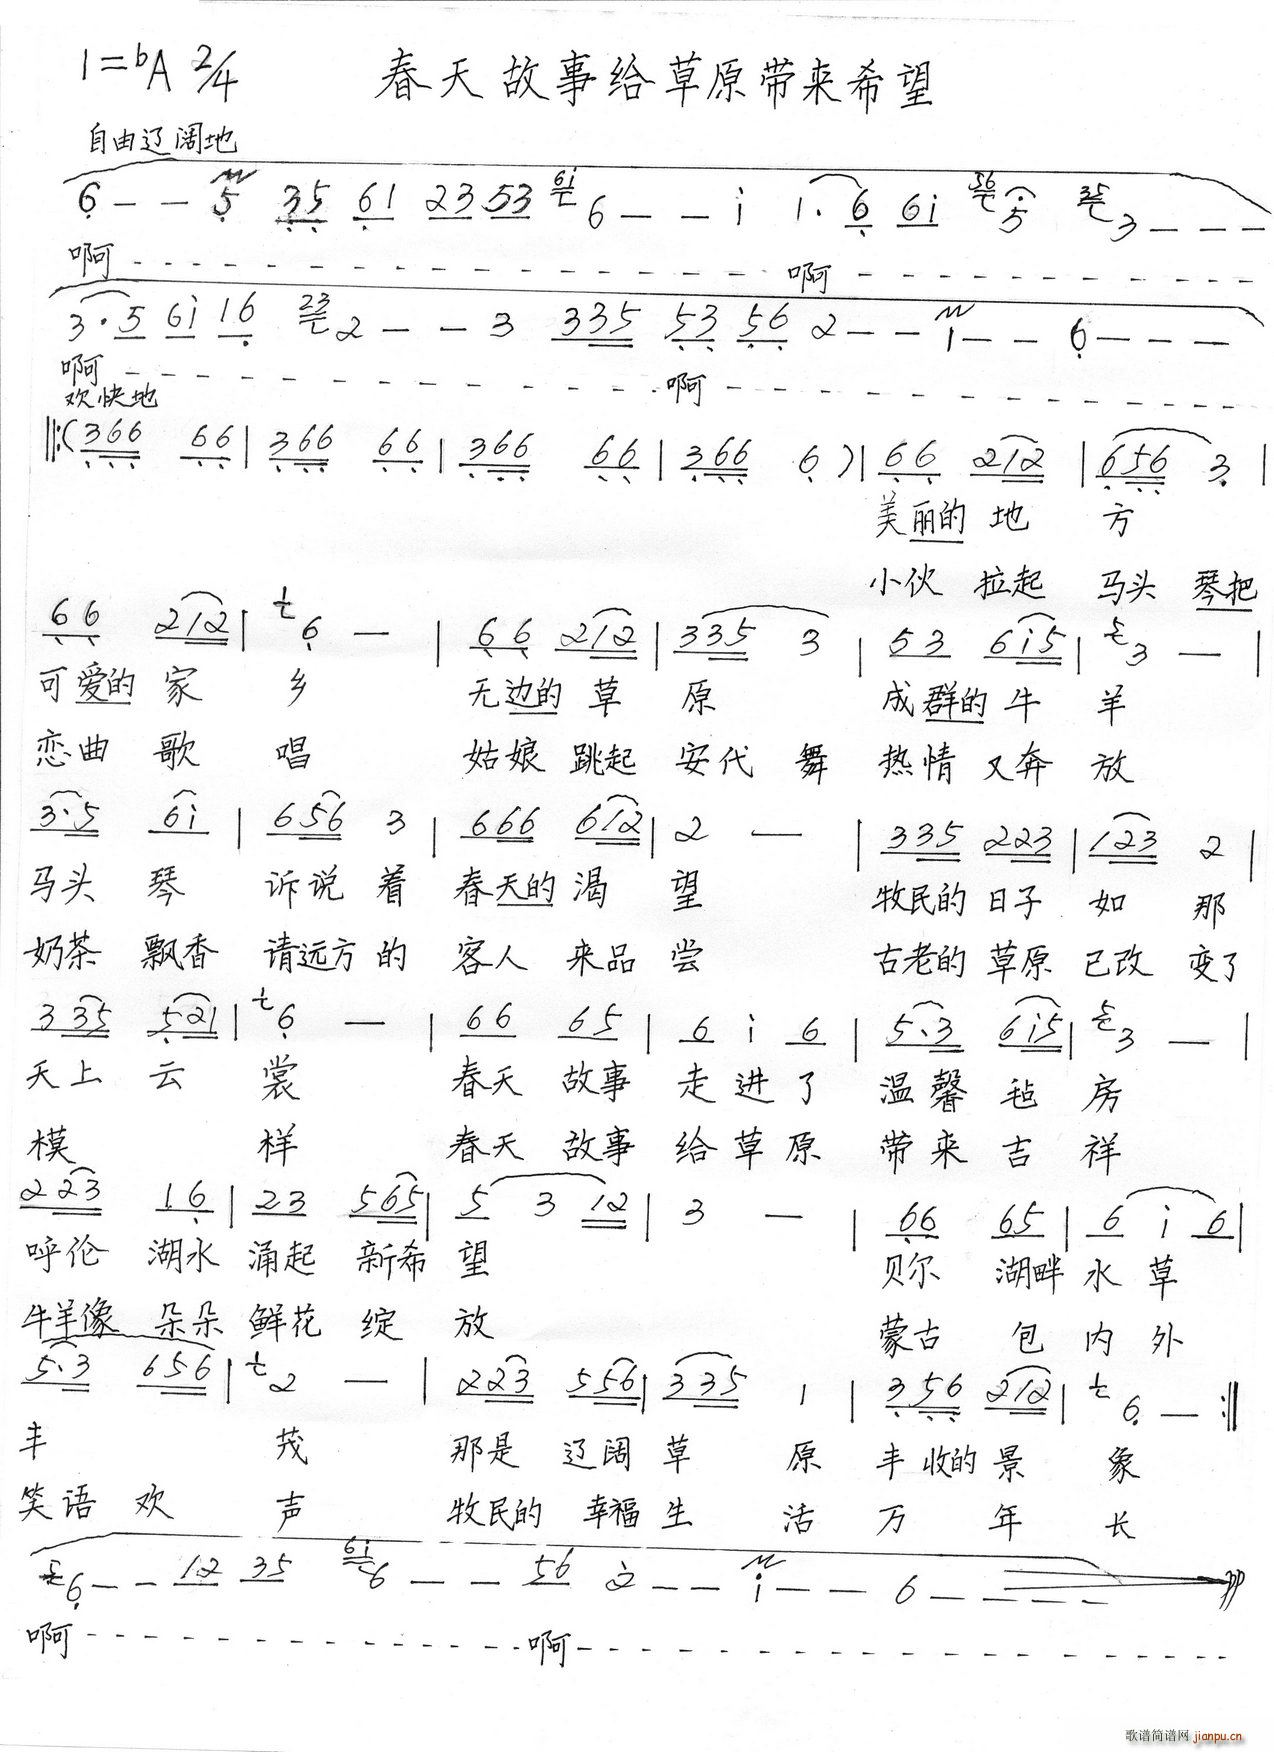 1=ᵇA 2/4 春天故事给草原带来希望
自由辽阔地
6 - - 5 35 61 23 53 6i 6 - - - i 1. 6 6i 56 5 35 3 - - -
啊 - - - 啊 - - -
3·5 6i 16 23 2 - - 3 335 53 56 2 - - 1 - - 6 - - -
啊 - - - 啊 - - -
欢快地
‖:(366 66 | 366 66 | 366 66 | 366 6 ) | 66 212 | 656 3 |
美丽的 地 方
小伙 拉起 马头 琴把
66 212 | 1 6 - | 66 212 | 335 3 | 53 6i5 | 5 3 - |
可爱的 家 乡 无边的 草 原 成群的 牛 羊
恋曲 歌 唱 姑娘 跳起 安代 舞 热情 又奔 放
3·5 6i | 656 3 | 666 612 | 2 - | 335 223 | 123 2 |
马头 琴 诉说 着 春天的 渴 望 牧民的 日子 如 那
奶茶 飘香 请远方 的 客人 来品 尝 古老的 草原 已改 变了
335 521 | 6 - | 66 65 | 6 i 6 | 5.3 6i5 | 5 3 - |
天上 云 裳 春天 故事 走 进 了 温馨 毡 房
模 样 春天 故事 给 草 原 带来 吉 祥
223 1.6 | 23 565 | 5 3 12 | 3 - | 66 65 | 6 i 6 |
呼伦 湖水 涌起 新希 望 贝尔 湖畔 水 草
牛羊像 朵朵 鲜花 绽 放 蒙古 包 内 外
5.3 656 | 2 - | 223 556 | 335 1 | 356 212 | 6 - :‖
丰 茂 那是 辽阔 草 原 丰 收的 景 象
笑语 欢 声 牧民的 幸福 生 活 万 年 长
6 - - 12 35 6i 6 - - 56 2 - - i - - 6 - - - - pp
啊 - - - 啊 - - -
歌谱简谱网 jianpu.cn